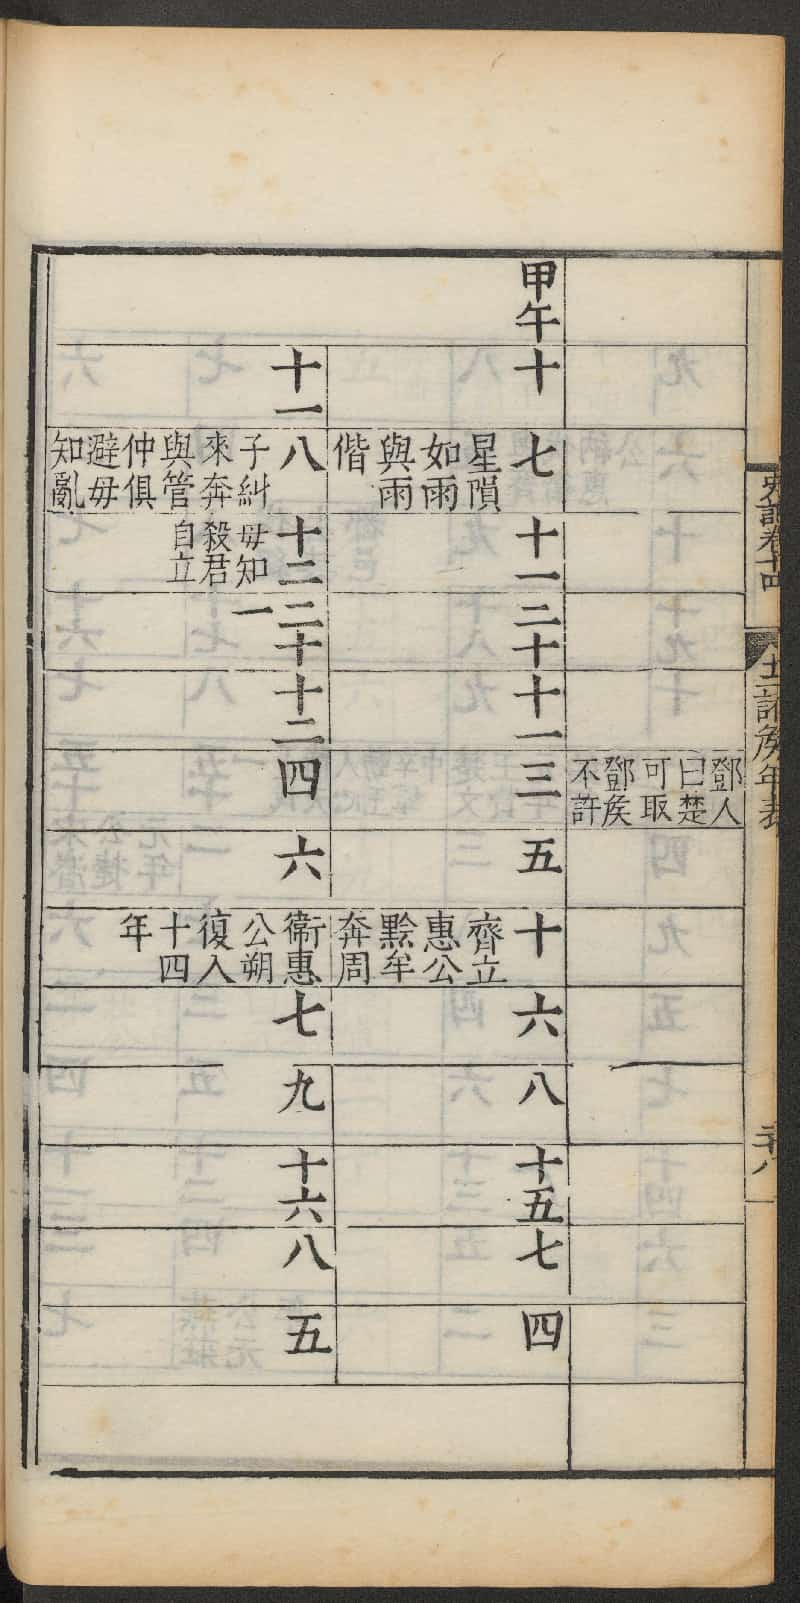 史記卷十四
十二諸矦年表
鄧人
曰楚
可取
鄧矦
不許
甲午
十
七
星隕
如雨
與雨
偕
十一
二十
十一
三
五
十
齊立
惠公
黔牟
奔周
六
八
十五
七
四
十一
八
子糾
來奔
與管
仲俱
避毋
知亂
十二
毋知
殺君
自立
二十
一
十二
四
六
衛惠
公朔
復入
十四
年
七
九
十六
八
五